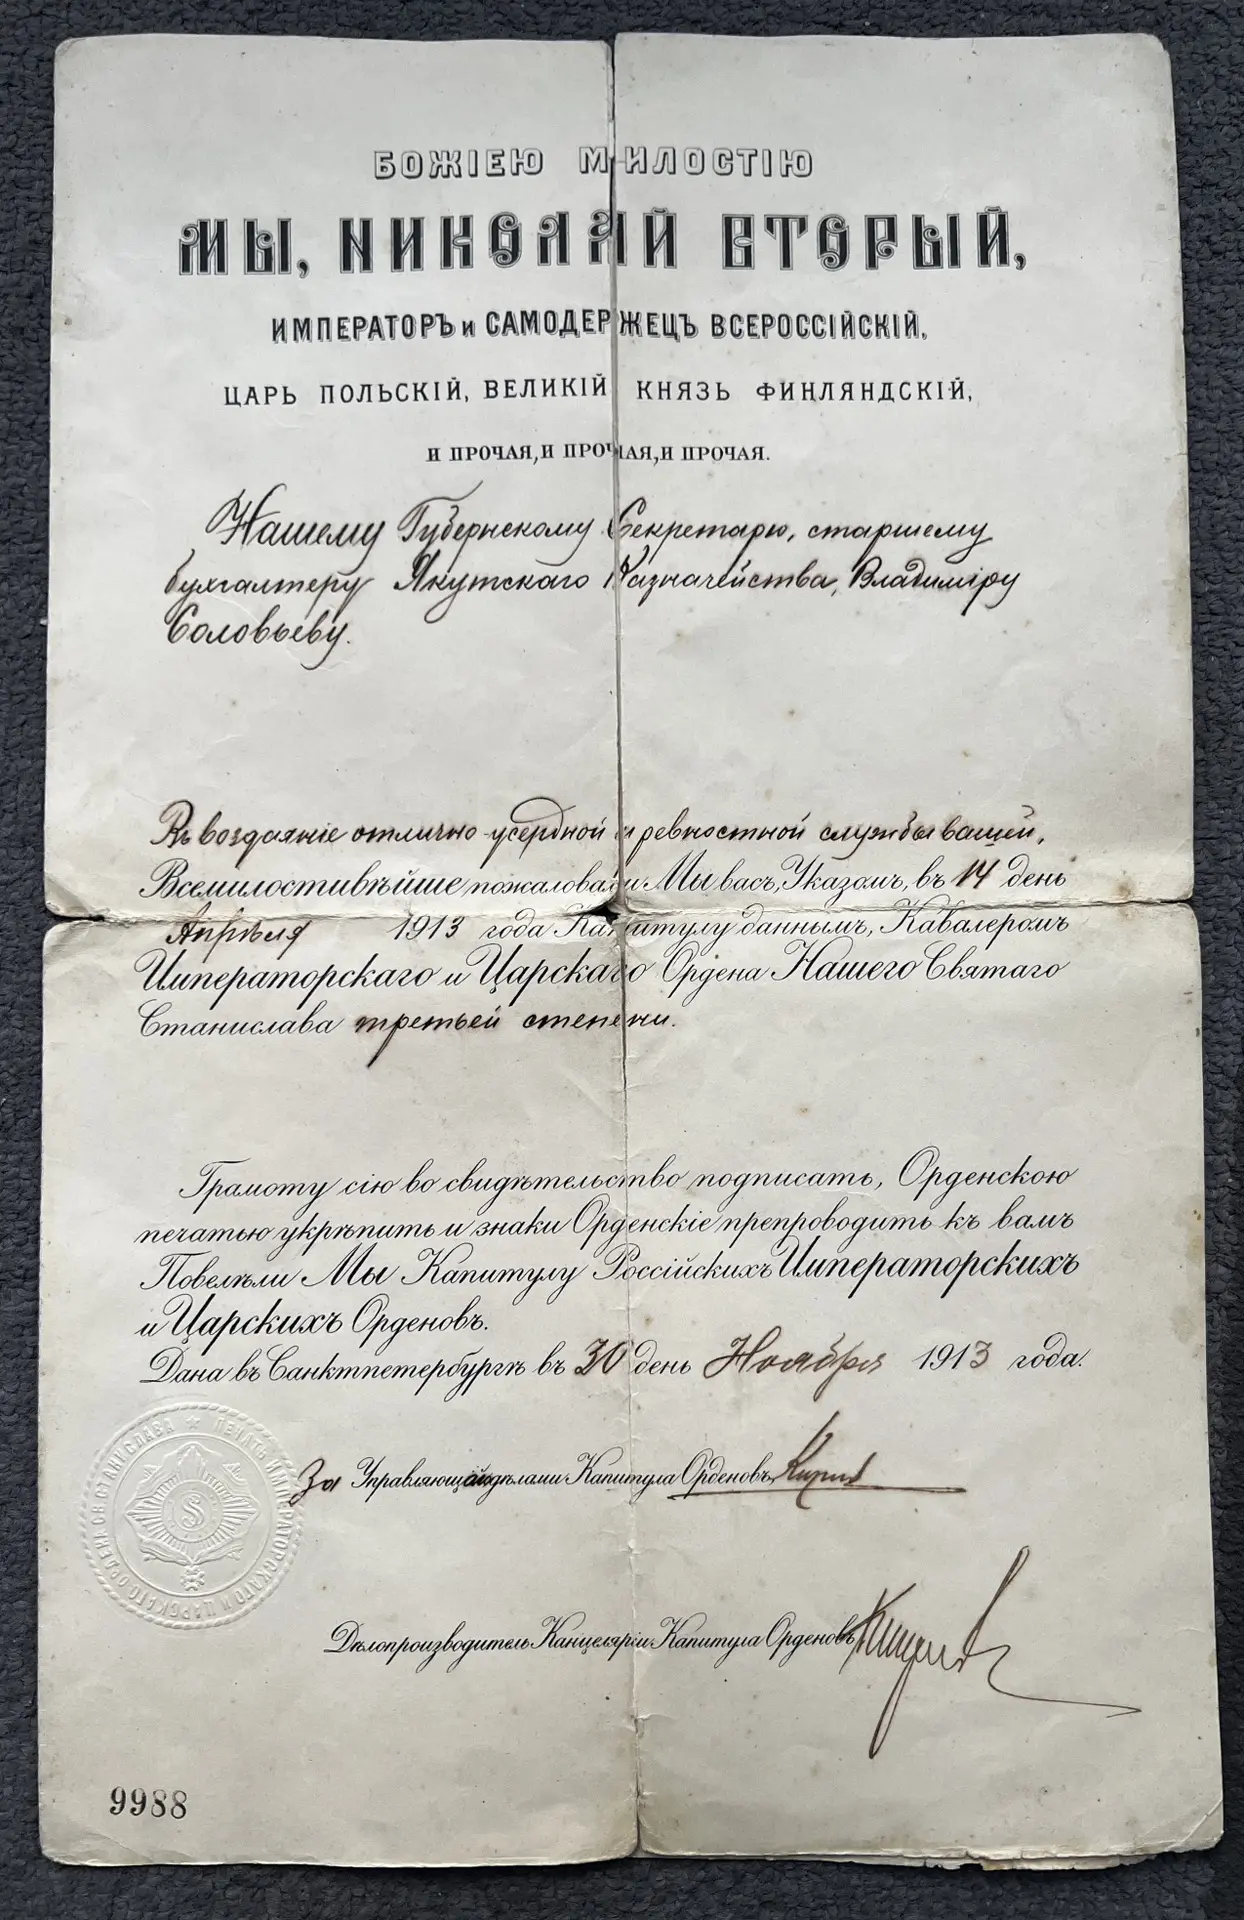 БОЖІЕЮ МИЛОСТІЮ
МЫ, НИКОЛАЙ ВТОРЫЙ,
ИМПЕРАТОРЪ и САМОДЕРЖЕЦЪ ВСЕРОССІЙСКІЙ,
ЦАРЬ ПОЛЬСКІЙ, ВЕЛИКІЙ КНЯЗЬ ФИНЛЯНДСКІЙ,
И ПРОЧАЯ, И ПРОЧАЯ, И ПРОЧАЯ.
Нашему Губернскому Секретарю, старшему
бухгалтеру Якутскаго Казначейства, Владиміру
Соловьеву.
Въ воздаяніе отлично-усердной и ревностной службы вашей,
Всемилостивѣйше пожаловали Мы васъ, Указомъ, въ 14 день
Апрѣля 1913 года Капитулу даннымъ, Кавалеромъ
Императорскаго и Царскаго Ордена Нашего Святаго
Станислава третьей степени.
Грамоту сію во свидѣтельство подписать, Орденскою
печатью укрѣпить и знаки Орденскіе препроводить къ вамъ
Повелѣли Мы Капитулу Россійскихъ Императорскихъ
и Царскихъ Орденовъ.
Дана въ Санктпетербургѣ въ 30 день Ноября 1913 года.
За Управляющаго дѣлами Капитула Орденовъ
ПЕЧАТЬ ИМПЕРАТОРСКАГО И ЦАРСКАГО ОРДЕНА СВ СТАНИСЛАВА
SS
Дѣлопроизводитель Канцеляріи Капитула Орденовъ
9988